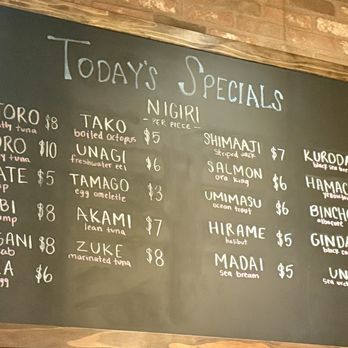 TODAY'S SPECIALS
NIGIRI
- PER PIECE -
TORO $8
tty tuna
ORO $10
tuna
ATE $5
BI $8
mp
ANI $8
ab
A $6
gg
TAKO $5
boiled octopus
UNAGI $6
freshwater eel
TAMAGO $3
egg omelette
AKAMI $7
lean tuna
ZUKE $8
marinated tuna
SHIMAAJI $7
striped jack
SALMON $6
ora king
UMIMASU $6
ocean trout
HIRAME $5
halibut
MADAI $5
sea bream
KURODA
black sea
HAMAC
BINCHO
albacore
GINDA
black
UN
sea